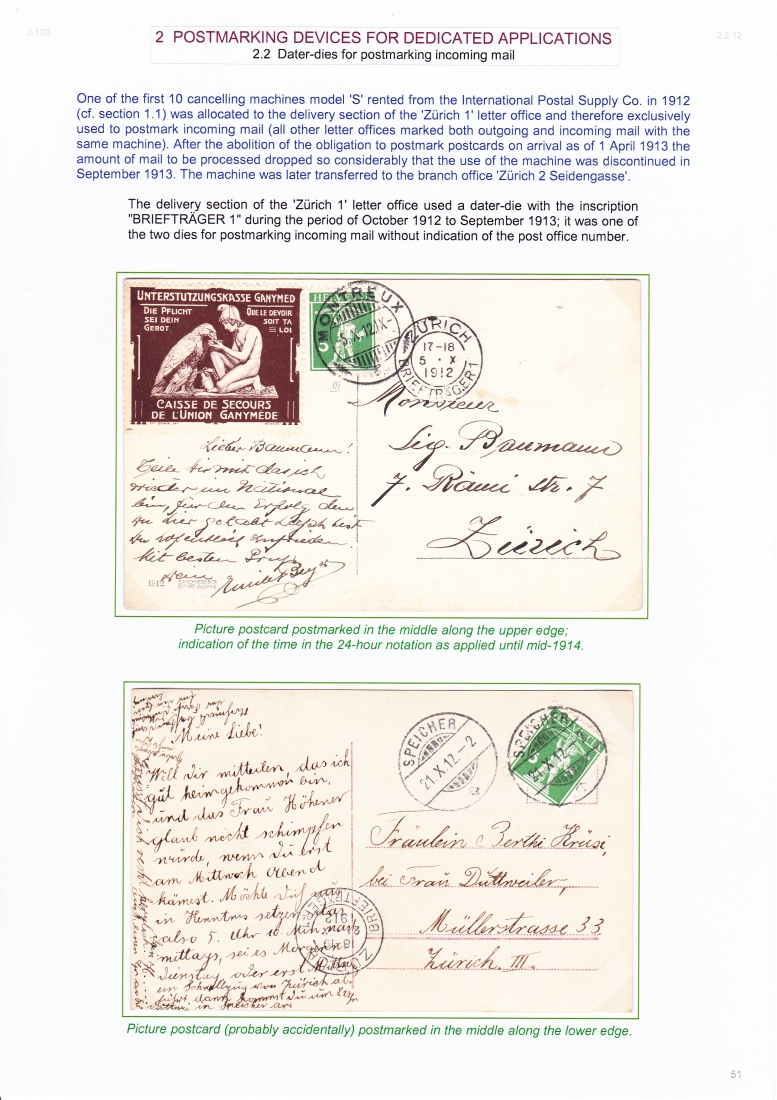 2.103
2.2.12
2 POSTMARKING DEVICES FOR DEDICATED APPLICATIONS
2.2 Dater-dies for postmarking incoming mail
One of the first 10 cancelling machines model 'S' rented from the International Postal Supply Co. in 1912
(cf. section 1.1) was allocated to the delivery section of the 'Zürich 1' letter office and therefore exclusively
used to postmark incoming mail (all other letter offices marked both outgoing and incoming mail with the
same machine). After the abolition of the obligation to postmark postcards on arrival as of 1 April 1913 the
amount of mail to be processed dropped so considerably that the use of the machine was discontinued in
September 1913. The machine was later transferred to the branch office 'Zürich 2 Seidengasse'.
The delivery section of the 'Zürich 1' letter office used a dater-die with the inscription
"BRIEFTRÄGER 1" during the period of October 1912 to September 1913; it was one of
the two dies for postmarking incoming mail without indication of the post office number.
UNTERSTUTZUNGSKASSE GANYMED
DIE PFLICHT
SEI DEIN
GEBOT
QUE LE DEVOIR
SOIT TA
LOI
CAISSE DE SECOURS
DE L'UNION GANYMÈDE
HELVETIA
5
MONTREUX
5.X.12.IX-
ZÜRICH
17-18
5 · X
1912
BRIEFTRÄGER 1
Monsieur
Sig. Baumann
7. Rämi str. 7
Zürich
Lieber Baumann!
Teile dir mit das ich
wieder im National
bin, für den Erfolg den
du hier gehabt
du hoffentlich zufrieden.
Mit besten Gruss
Dein
11:12
Picture postcard postmarked in the middle along the upper edge;
indication of the time in the 24-hour notation as applied until mid-1914.
SPEICHER
21.X.12.-2
SPEICHER
21.X.12.-
Meine Liebe!
Will dir mitteilen, das ich
gut heimgekommen bin,
und das Frau Höhener
glaub nocht schimpfen
würde, wenn Du erst
am Mittwoch Abend
kämest. Möchte Dich nun
in Kenntnis setzen, das
also 5. Uhr 10 Min. nach
mittags, sei es Morgen
Dienstag oder erst Mittw.
ein Schnellzug von Zürich ab-
fährt, dann kommst Du um
in Speicher an.
ZÜRICH
1912
BRIEFTRÄGER
Fräulein Berthi Krüsi,
bei Frau Duttweiler,
Müllerstrasse 33
Zürich. III.
Picture postcard (probably accidentally) postmarked in the middle along the lower edge.
51